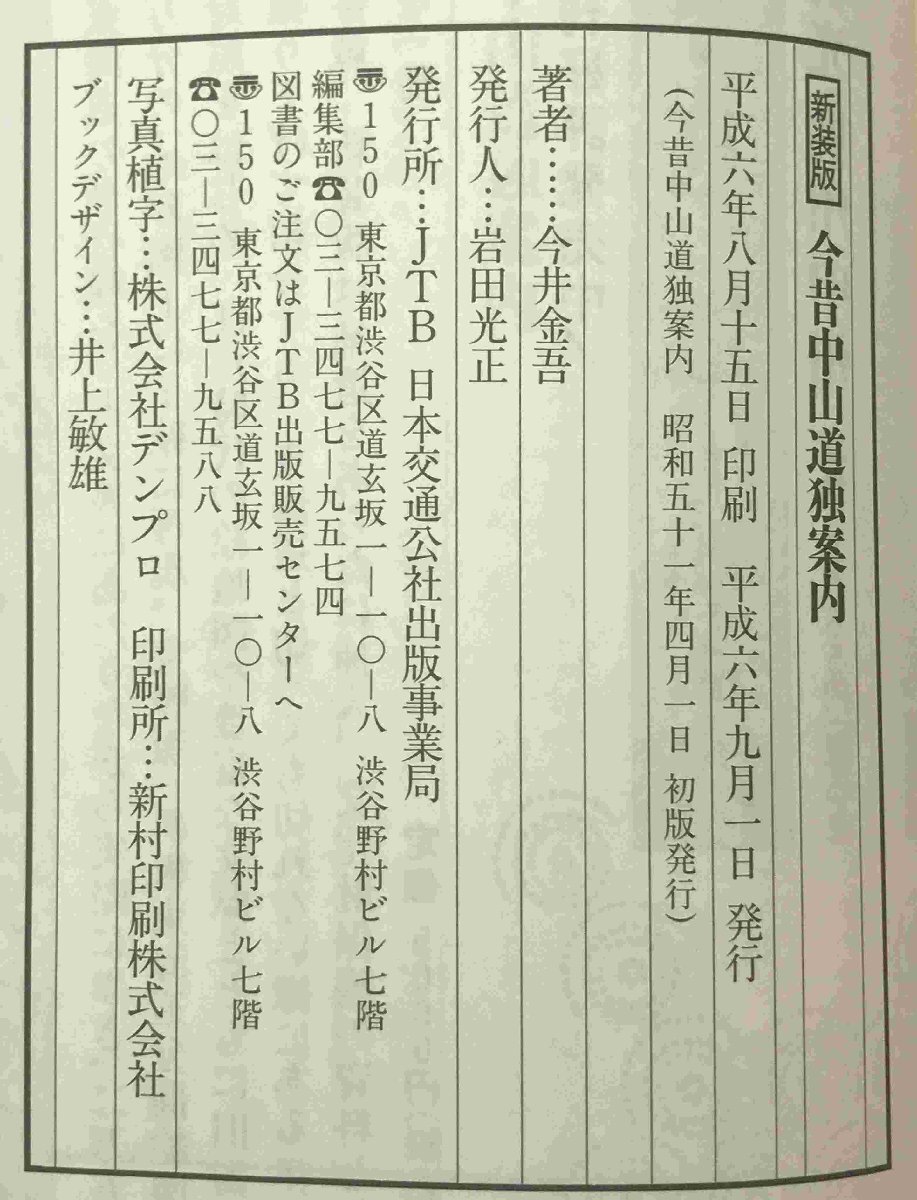 新装版 今昔中山道独案内
平成六年八月十五日 印刷 平成六年九月一日 発行
（今昔中山道独案内 昭和五十一年四月一日 初版発行）
著者……今井金吾
発行人…岩田光正
発行所…JTB 日本交通公社出版事業局
〠150 東京都渋谷区道玄坂一―一〇―八 渋谷野村ビル七階
編集部☎〇三―三四七七―九五七四
図書のご注文はJTB出版販売センターへ
〠150 東京都渋谷区道玄坂一―一〇―八 渋谷野村ビル七階
☎〇三―三四七七―九五八八
写真植字…株式会社デンプロ 印刷所…新村印刷株式会社
ブックデザイン…井上敏雄